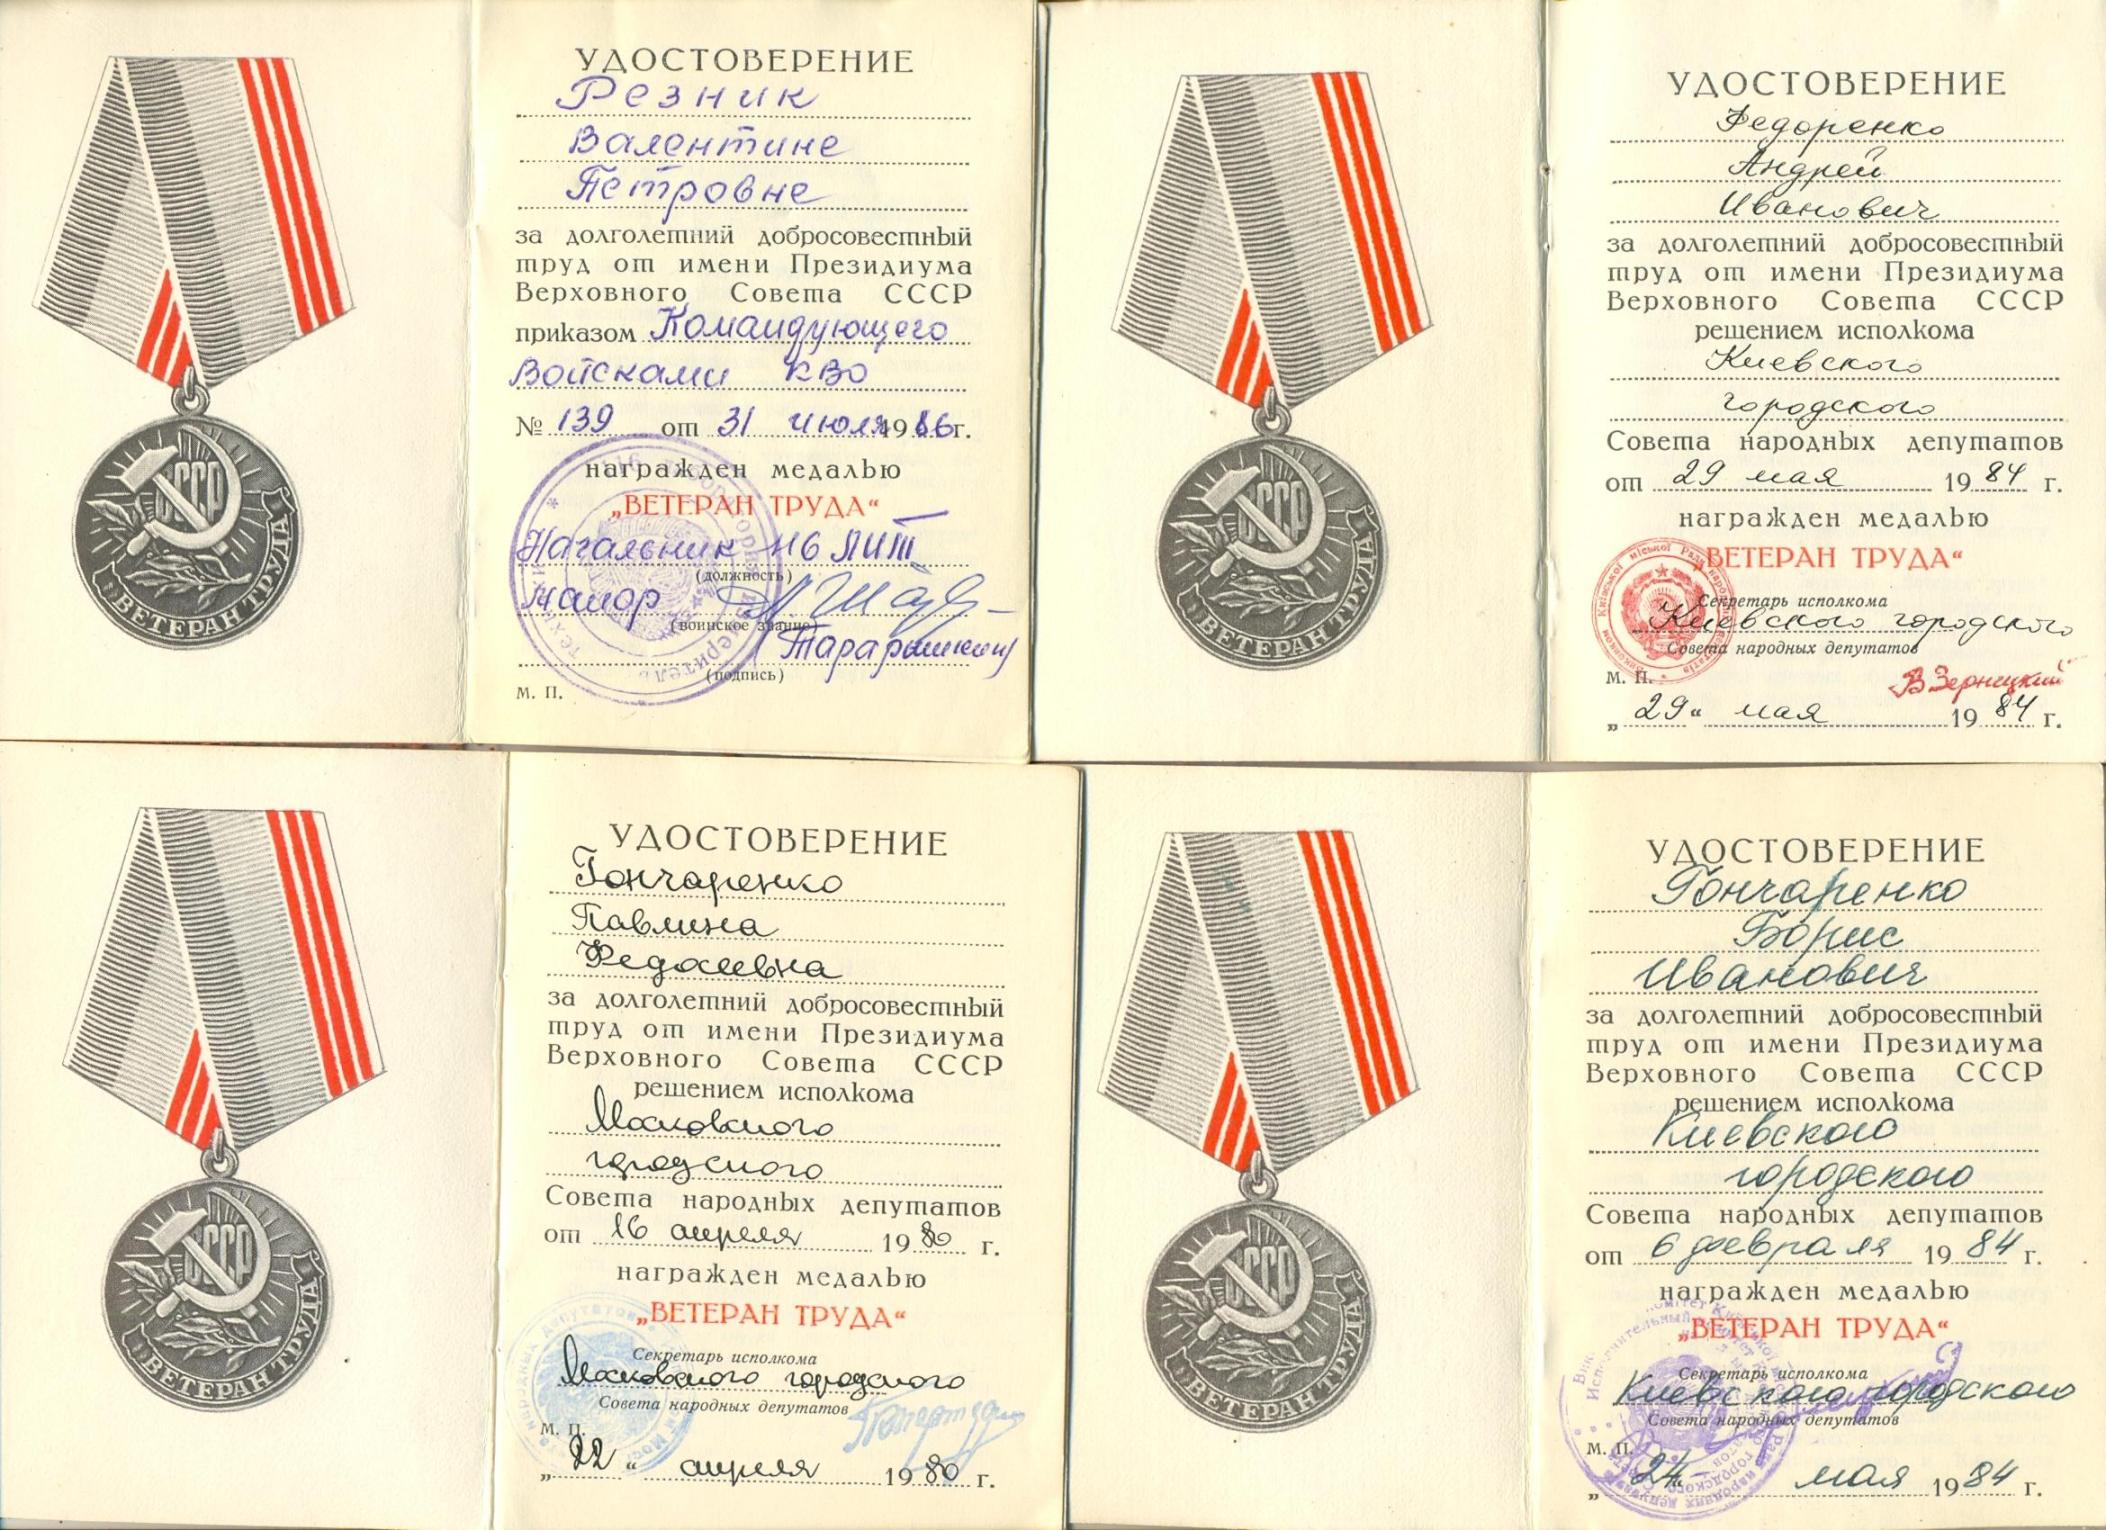 СССР
ВЕТЕРАН ТРУДА
УДОСТОВЕРЕНИЕ
Резник
Валентине
Петровне
за долголетний добросовестный
труд от имени Президиума
Верховного Совета СССР
приказом Командующего
Войсками КВО
№ 139 от 31 июля 1986 г.
награжден медалью
„ВЕТЕРАН ТРУДА“
Начальник 116 ЛИТ
(должность)
майор
(воинское звание)
(подпись)
М. П.
СССР
ВЕТЕРАН ТРУДА
УДОСТОВЕРЕНИЕ
Федоренко
Андрей
Иванович
за долголетний добросовестный
труд от имени Президиума
Верховного Совета СССР
решением исполкома
Киевского
городского
Совета народных депутатов
от 29 мая 1984 г.
награжден медалью
„ВЕТЕРАН ТРУДА“
Секретарь исполкома
Киевского городского
Совета народных депутатов
М. П.
В Зернецкий
„29“ мая 1984 г.
СССР
ВЕТЕРАН ТРУДА
УДОСТОВЕРЕНИЕ
Гончаренко
Павлина
Федосеевна
за долголетний добросовестный
труд от имени Президиума
Верховного Совета СССР
решением исполкома
Московского
городского
Совета народных депутатов
от 16 апреля 1980 г.
награжден медалью
„ВЕТЕРАН ТРУДА“
Секретарь исполкома
Московского городского
Совета народных депутатов
М. П.
„22“ апреля 1980 г.
СССР
ВЕТЕРАН ТРУДА
УДОСТОВЕРЕНИЕ
Гончаренко
Борис
Иванович
за долголетний добросовестный
труд от имени Президиума
Верховного Совета СССР
решением исполкома
Киевского
городского
Совета народных депутатов
от 6 февраля 1984 г.
награжден медалью
„ВЕТЕРАН ТРУДА“
Секретарь исполкома
Киевского городского
Совета народных депутатов
М. П.
„24“ мая 1984 г.